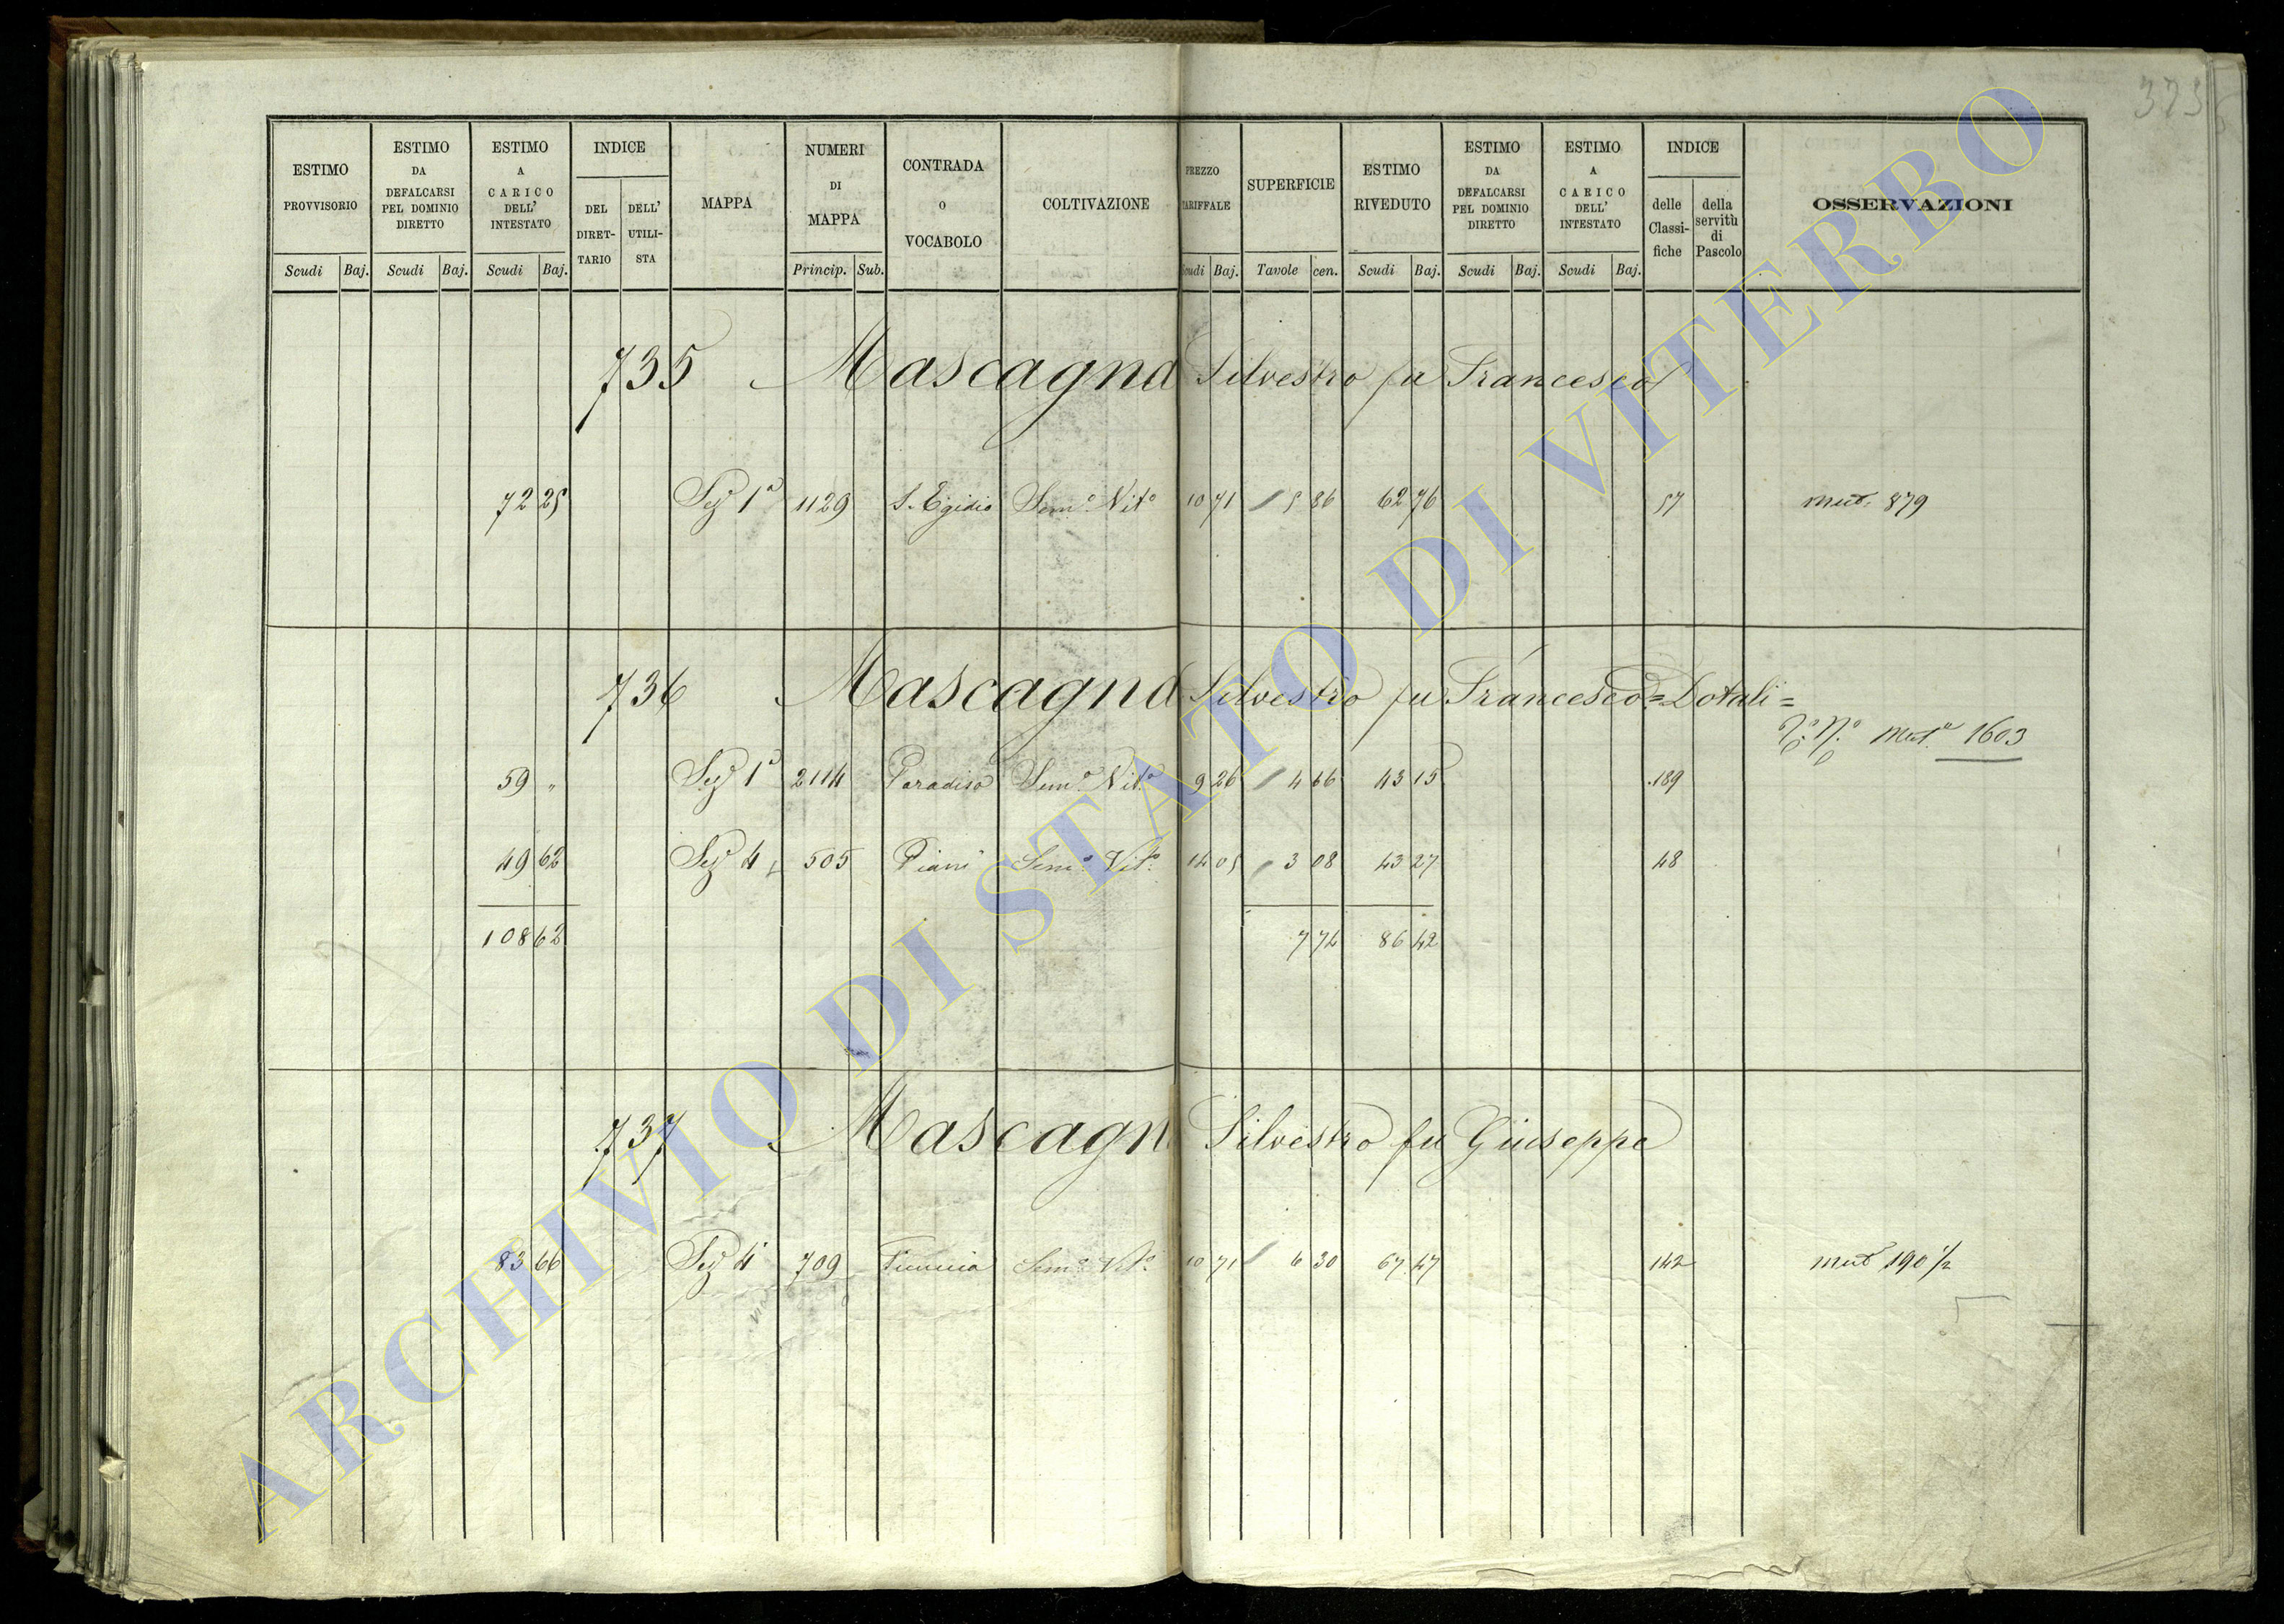 373
ESTIMO PROVVISORIO
Scudi Baj.
ESTIMO DA DEFALCARSI PEL DOMINIO DIRETTO
Scudi Baj.
ESTIMO A CARICO DELL' INTESTATO
Scudi Baj.
INDICE
DEL DIRET-TARIO
DELL' UTILI-STA
MAPPA
NUMERI DI MAPPA
Princip. Sub.
CONTRADA O VOCABOLO
COLTIVAZIONE
PREZZO TARIFFALE
Scudi Baj.
SUPERFICIE
Tavole cen.
ESTIMO RIVEDUTO
Scudi Baj.
ESTIMO DA DEFALCARSI PEL DOMINIO DIRETTO
Scudi Baj.
ESTIMO A CARICO DELL' INTESTATO
Scudi Baj.
INDICE
delle Classi-fiche
della servitù di Pascolo
OSSERVAZIONI
735 Mascagna Silvestro fu Francesco
72 25 Sez 1ª 1129 S. Egidio Sem.º Vit.º 10 71 5 86 62 76 57 mut. 879
736 Mascagna Silvestro fu Francesco = Dotali =
mut.ª 1603
59 " Sez 1ª 2114 Paradiso Sem.º Vit.º 9 26 4 66 43 15 189
49 62 Sez 4 505 Piani Sem.º Vit.º 14 05 3 08 43 27 48
108 62 7 74 86 42
737 Mascagn Silvestro fu Giuseppe
83 66 Sez 4ª 709 Sem.º Vit.º 10 71 6 30 67 47 142 mut 190 1/2
ARCHIVIO DI STATO DI VITERBO